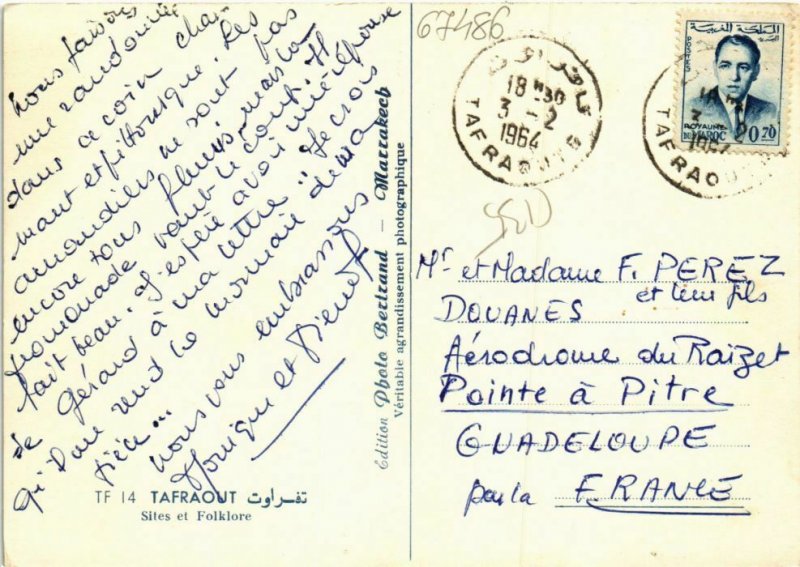 nous faisons
une randonnée
dans ce coin char
mant et pittoresque. Les
amandiers ne sont pas
encore tous fleuris, mais la
promenade vaut le coup. Il
fait beau. J'espère avoir une réponse
de Gérard à ma lettre.. Je crois
qu'on me rend la monnaie de ma
pièce...
nous vous embrassons
Monique et Pierrot
TF 14 TAFRAOUT تفراوت
Sites et Folklore
Edition Photo Bertrand - Marrakech
Véritable agrandissement photographique
67486
18 H30
3 - 2
1964
TAFRAOUT
POSTES
المملكة المغربية
ROYAUME
DU MAROC
0,70
3
1964
TAFRAOUT
Mr et Madame F. PEREZ
et leur fils
DOUANES
Aérodrome du Raizet
Pointe à Pitre
GUADELOUPE
par la FRANCE